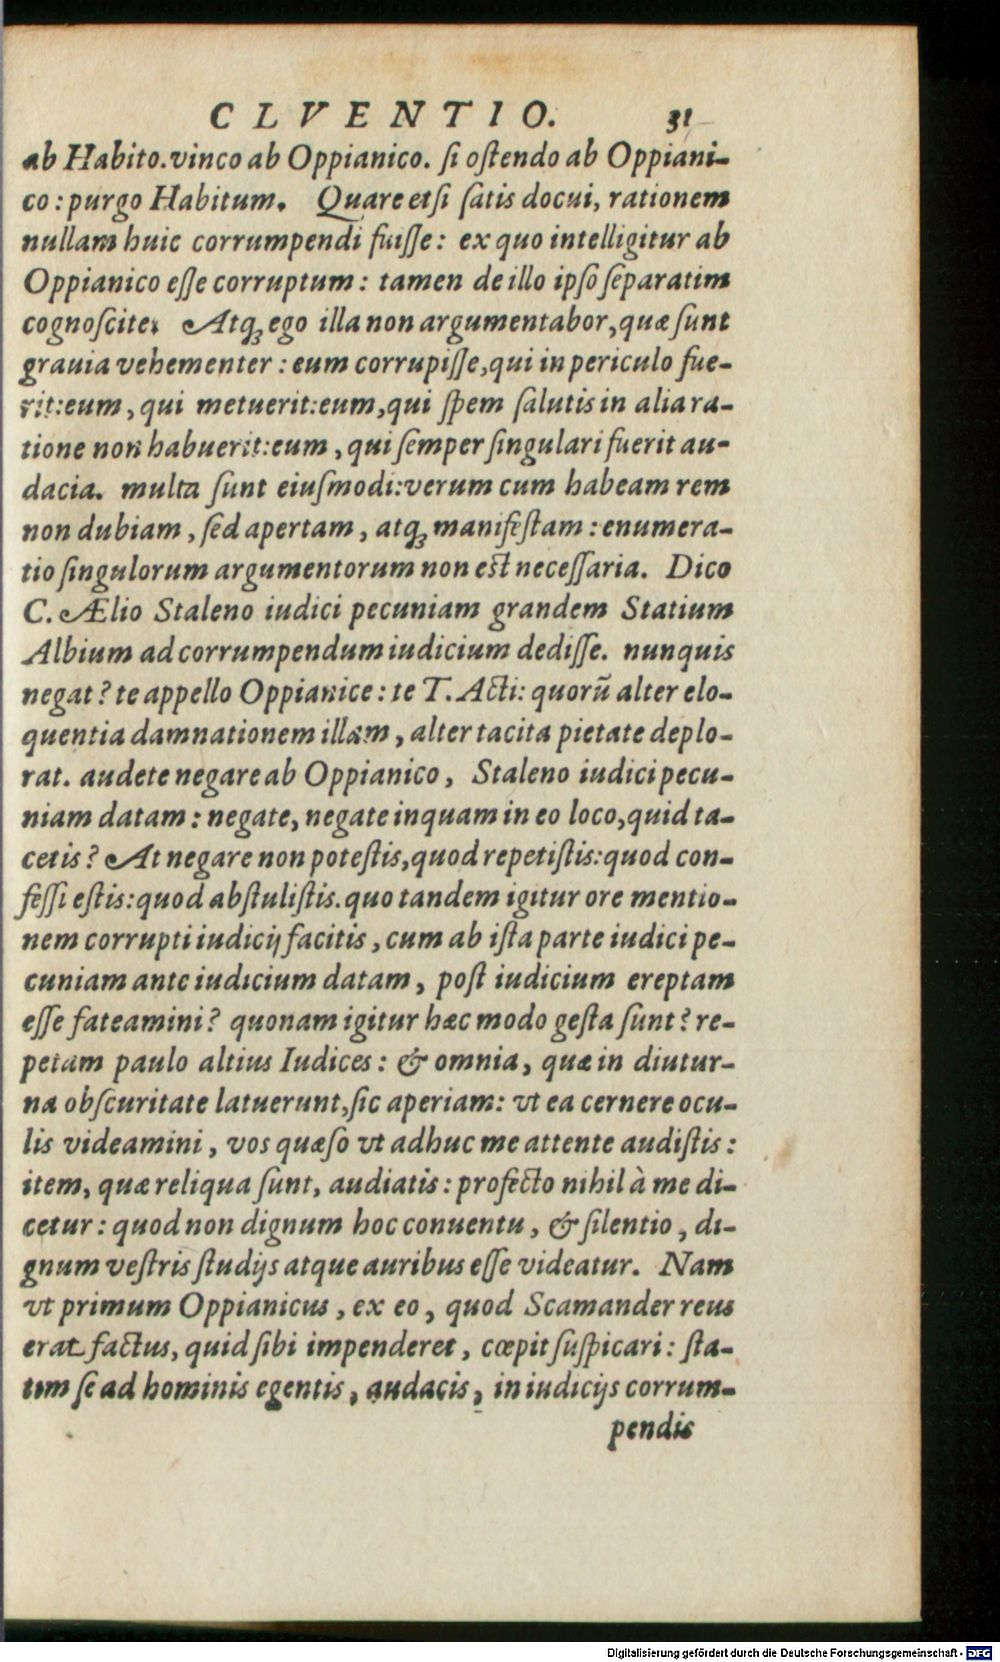 CLVENTIO. 31
ab Habito. vinco ab Oppianico. ſi oſtendo ab Oppiani-
co: purgo Habitum. Quare etſi ſatis docui, rationem
nullam huic corrumpendi fuiſſe: ex quo intelligitur ab
Oppianico eſſe corruptum: tamen de illo ipſo ſeparatim
cognoſcite. Atq; ego illa non argumentabor, quæ ſunt
grauia vehementer: eum corrupiſſe, qui in periculo fue-
rit: eum, qui metuerit: eum, qui ſpem ſalutis in alia ra-
tione non habuerit: eum, qui ſemper ſingulari fuerit au-
dacia. multa ſunt eiuſmodi: verum cum habeam rem
non dubiam, ſed apertam, atq; manifeſtam: enumera-
tio ſingulorum argumentorum non eſt neceſſaria. Dico
C. Ælio Staleno iudici pecuniam grandem Statium
Albium ad corrumpendum iudicium dediſſe. nunquis
negat? te appello Oppianice: te T. Acti: quorũ alter elo-
quentia damnationem illam, alter tacita pietate deplo-
rat. audete negare ab Oppianico, Staleno iudici pecu-
niam datam: negate, negate inquam in eo loco, quid ta-
cetis? At negare non poteſtis, quod repetiſtis: quod con-
feſſi eſtis: quod abſtuliſtis. quo tandem igitur ore mentio-
nem corrupti iudicij facitis, cum ab iſta parte iudici pe-
cuniam ante iudicium datam, poſt iudicium ereptam
eſſe fateamini? quonam igitur hæc modo geſta ſunt? re-
petam paulo altius Iudices: & omnia, quæ in diutur-
na obſcuritate latuerunt, ſic aperiam: vt ea cernere ocu-
lis videamini, vos quæſo vt adhuc me attente audiſtis:
item, quæ reliqua ſunt, audiatis: profecto nihil à me di-
cetur: quod non dignum hoc conuentu, & ſilentio, di-
gnum veſtris ſtudijs atque auribus eſſe videatur. Nam
vt primum Oppianicus, ex eo, quod Scamander reus
erat factus, quid ſibi impenderet, cœpit ſuſpicari: ſta-
tim ſe ad hominis egentis, audacis, in iudicijs corrum-
pendis
Digitalisierung gefördert durch die Deutsche Forschungsgemeinschaft - DFG